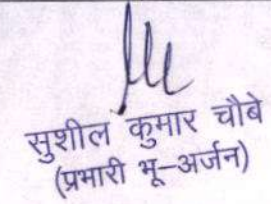 सुशील कुमार चौबे
(प्रभारी भू–अर्जन)